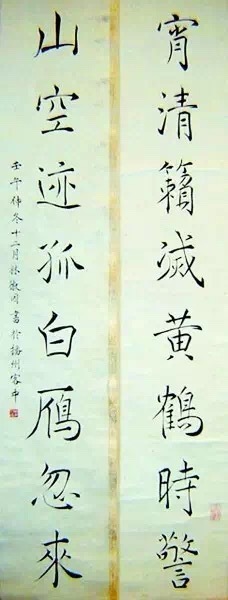 宵清籟滅黄鶴時警
山空迹孤白鴈忽來
壬午仲冬十二月林散同書於揚州客中